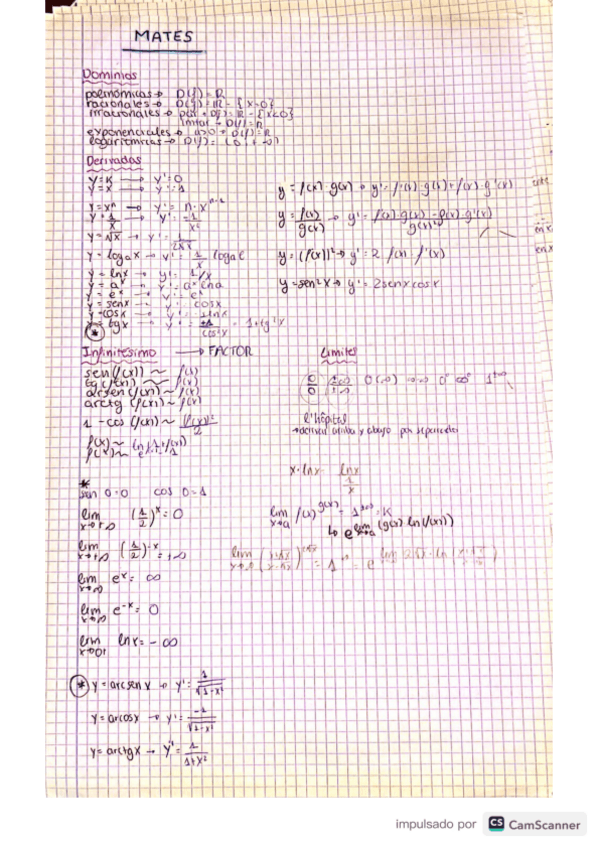 MATES
Dominios
polinómicas → D(f) = R
racionales → D(f) = R - {x=0}
irracionales → par → D(f) = R - {x<0}
impar → D(f) = R
exponenciales → a>0 → D(f) = R
logarítmicas → D(f) = (0, +∞)
Derivadas
y = K → y' = 0
y = x → y' = 1
y = xⁿ → y' = n·xⁿ⁻¹
y = 1/x → y' = -1/x²
y = √x → y' = 1/2√x
y = logₐx → y' = 1/x logₐe
y = lnx → y' = 1/x
y = aˣ → y' = aˣ lna
y = eˣ → y' = eˣ
y = senx → y' = cosx
y = cosx → y' = -senx
* y = tgx → y' = +1/cos²x = 1+tg²x
y = f(x)·g(x) → y' = f'(x)·g(x)+f(x)·g'(x)
y = f(x)/g(x) → y' = f'(x)·g(x)-f(x)·g'(x)/g(x)²
y = (f(x))² → y' = 2 f(x)·f'(x)
y = sen²x → y' = 2senxcosx
Infinitésimo → FACTOR
sen(f(x)) ~ f(x)
tg(f(x)) ~ f(x)
arcsen(f(x)) ~ f(x)
arctg(f(x)) ~ f(x)
1 - cos(f(x)) ~ (f(x))²/2
f(x) ~ ln(1+f(x))
Límites
0/0 ±∞/±∞ 0(∞) ∞-∞ 0⁰ ∞⁰ 1^±∞
l'hôpital
→ derivar arriba y abajo por separado
x·lnx lnx/1/x
*
sen 0=0 cos 0=1
lim x→+∞ (1/2)ˣ = 0
lim x→+∞ (1/2)⁻ˣ = +∞
lim x→∞ eˣ = ∞
lim x→∞ e⁻ˣ = 0
lim x→0+ lnx = -∞
lim x→a f(x)^g(x) = 1^±∞ = K
↳ e^lim x→a (g(x) ln(f(x)))
* y = arcsenx → y' = 1/√1-x²
y = arcosx → y' = -1/√1-x²
y = arctgx → y' = 1/1+x²
impulsado por CS CamScanner